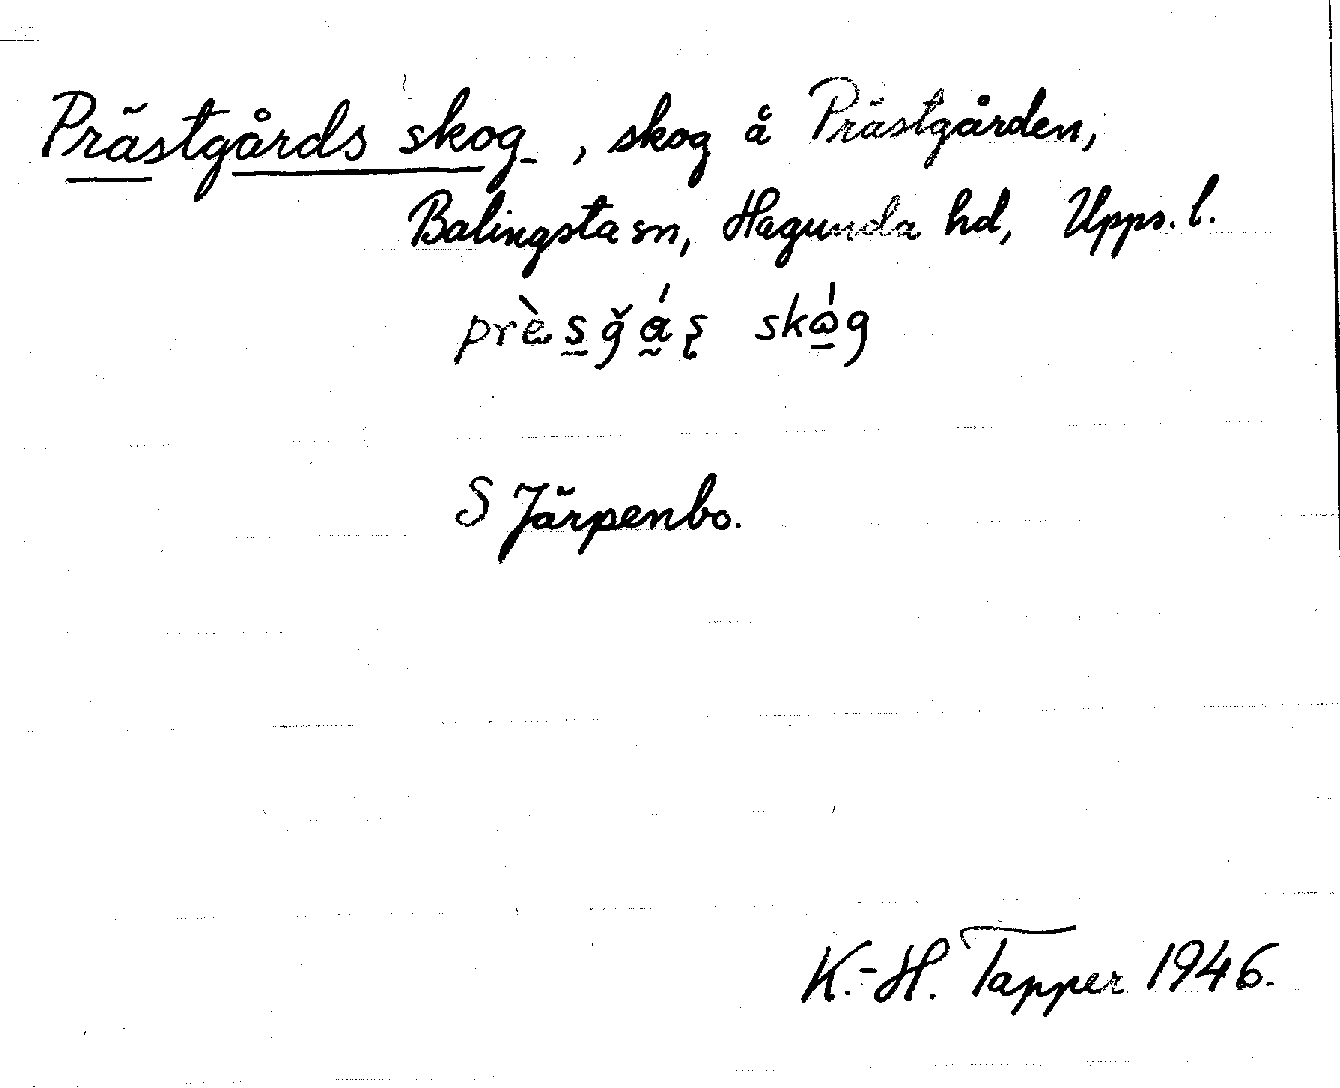 Prästgårds skog, skog å Prästgården,
Balingsta sn, Hagunda hd, Upps. l.
prèsǧáʂ skóg
S Järpenbo.
K.-H. Tapper 1946.